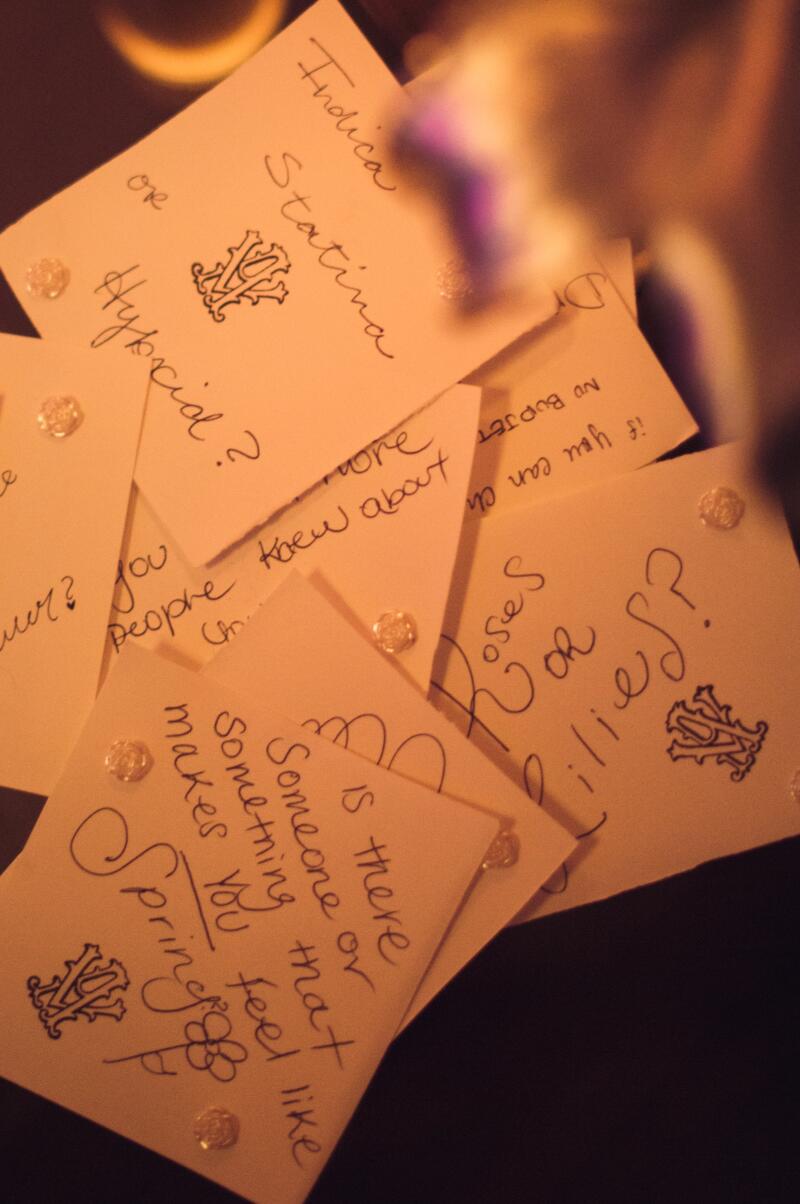 Indica
Statina
or
Hybrid?
NO BUDJET
if you can
more
you
people knew about
Roses
or
Lilies?
is there
Someone or
something that
makes you feel like
Spring